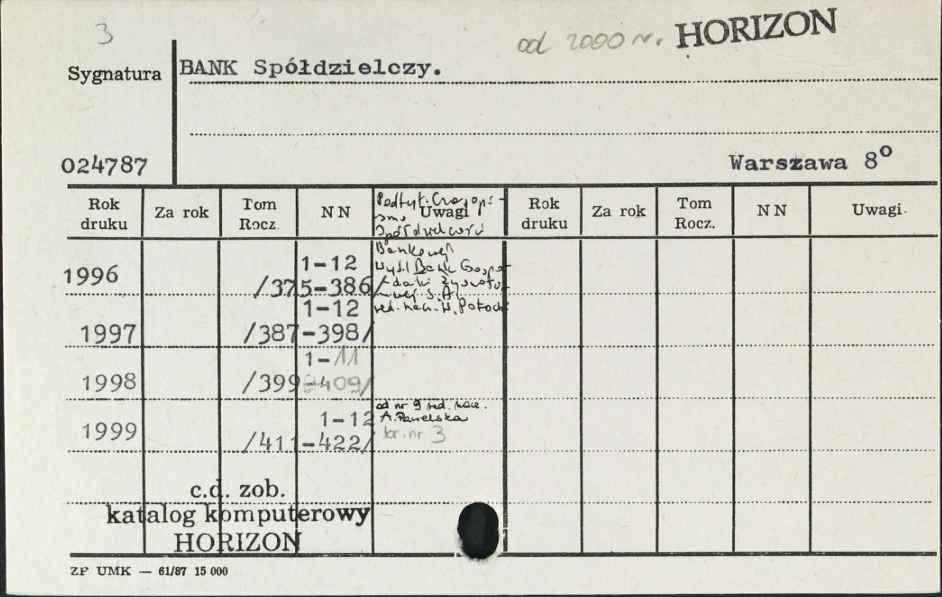 3
od 2000 r. HORIZON
Sygnatura BANK Spółdzielczy.
024787 Warszawa 8°
Rok druku Za rok Tom Rocz. NN Uwagi Rok druku Za rok Tom Rocz. NN Uwagi
Podtyt. Czasopi-
smo
Spółdzielczości
Bankowej
Wyd. Bank Gospo-
darki Żywnościo-
wej S.A.
red. nacz. H. Potoch
1996 1-12
/375-386/
1997 1-12
/387-398/
1998 1-11
/399-409/
1999 1-12
/411-422/
od nr 9 red. nacz.
A. Pawelska
br. nr 3
c.d. zob.
katalog komputerowy
HORIZON
ZP UMK — 61/87 15 000